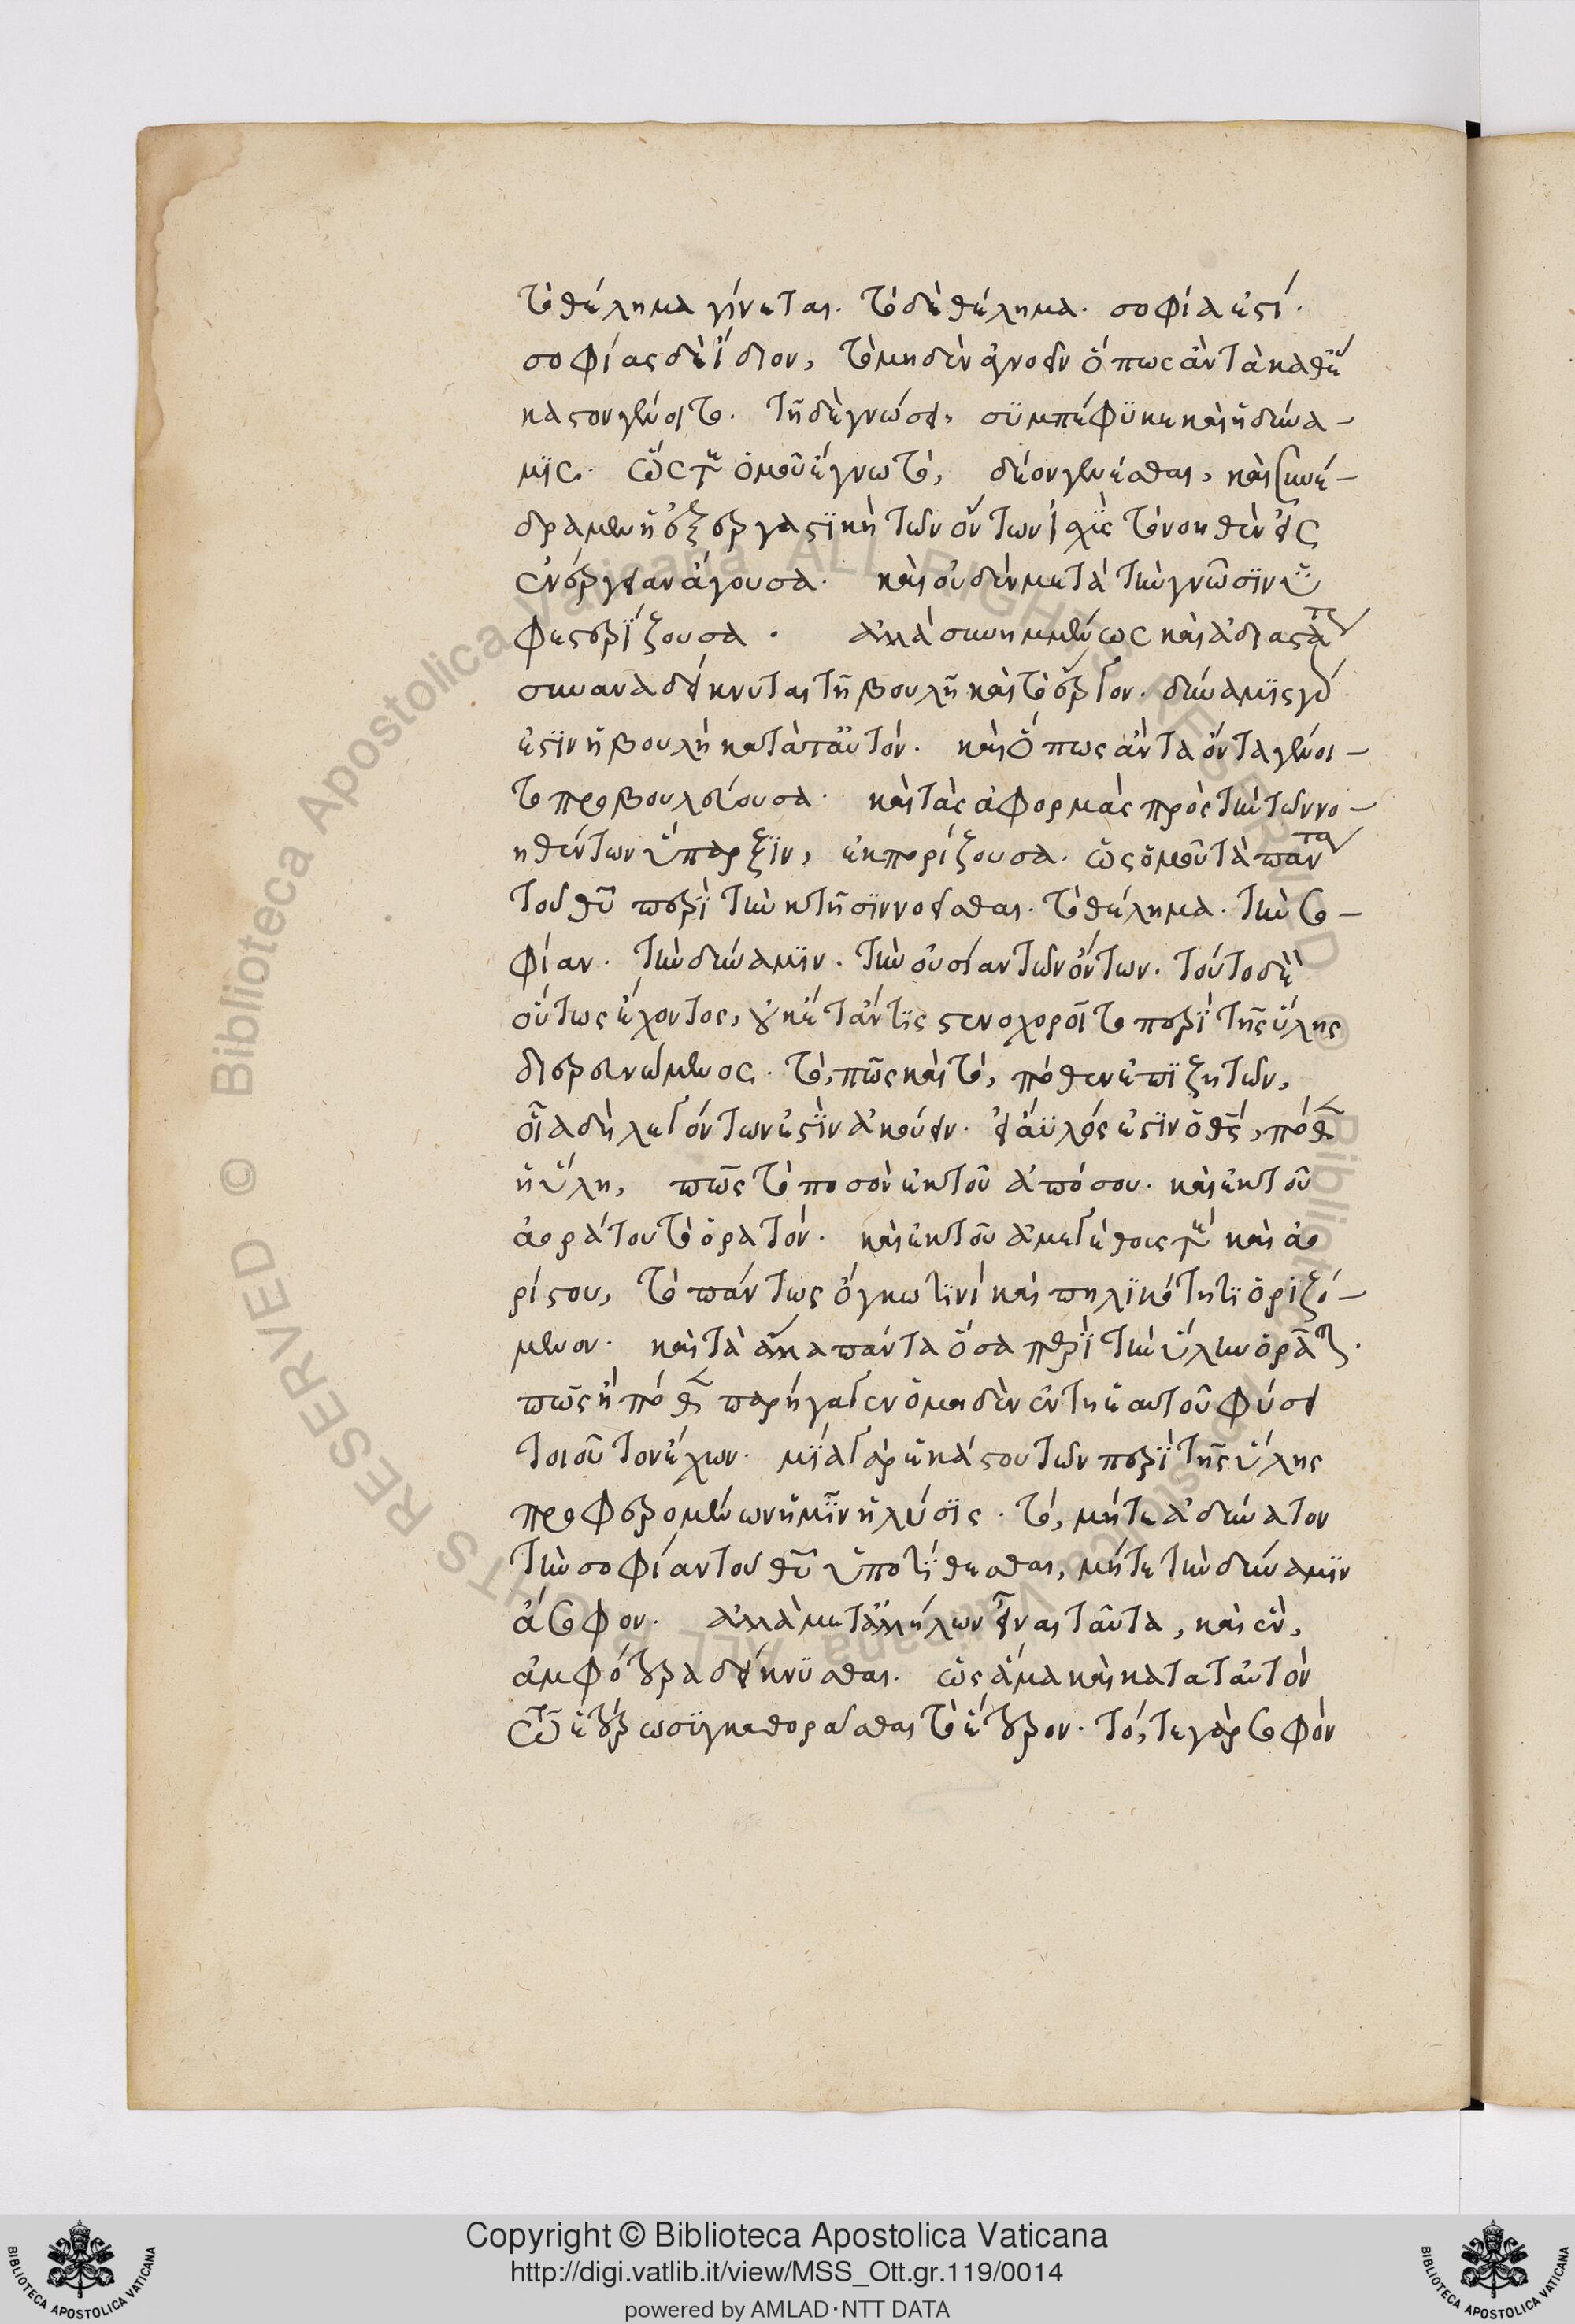 τὸ θέλημα γίνεται. τὸ δὲ θέλημα. σοφία ἐστί.
σοφίας δὲ ἴδιον, τὸ μηδὲν ἀγνοεῖν ὅπως ἂν τὰ καθέ
καστον γένοιτο. τῆ δὲ γνώσει, συμπέφυκε καὶ ἡ δύνα-
μις. ὥστε ὁμοῦ ἔγνω τὸ, δέον γενέσθαι, καὶ συνέ-
δραμεν ἡ ἐξεργαστικὴ τῶν ὄντων ἰσχὺς τὸ νοηθὲν εἰς
ἐνέργειαν ἄγουσα. καὶ οὐδὲν μετὰ τὴν γνῶσιν ὑ
φεστερίζουσα. ἀλλὰ συνημμένως καὶ ἀδιαστάτως
συναναδείκνυται τῆ βουλῆ καὶ τὸ ἔργον. δύναμις γάρ
ἐστιν ἡ βουλὴ κατὰ ταὐτὸν. καὶ ὅπως ἂν τὰ ὄντα γένοι-
το προβουλεύουσα. καὶ τὰς ἀφορμὰς πρὸς τὴν τῶν νο-
ηθέντων ὕπαρξιν, ἐκπορίζουσα. ὡς ὁμοῦ τὰ πάντα
τοῦ θῦ περὶ τὴν κτῆσιν νοεῖσθαι. τὸ θέλημα. τὴν σο-
φίαν. τὴν δύναμιν. τὴν οὐσίαν τῶν ὄντων. τούτο δὲ
οὕτως ἔχοντος, οὐκέτ' ἄν τις στενοχοροῖτο περὶ τῆς ὕλης
διερευνώμενος. τὸ, πῶς καὶ τὸ, πόθεν ἐπιζητῶν,
οἷα δὴ λεγόντων ἐστὶν ἀκούειν. εἰ ἄϋλός ἐστιν ὁ θς, πόθεν
ἡ ὕλη, πῶς τὸ ποσὸν ἐκ τοῦ ἀπόσου. καὶ ἐκ τοῦ
ἀοράτου τὸ ὁρατόν. καὶ ἐκ τοῦ ἀμεγέθους τε καὶ ἀο
ρίστου, τὸ πάντως ὄγκω τινὶ καὶ πηλικότητι ὁριζό-
μενον. καὶ τὰ ἄλλα πάντα ὅσα περὶ τὴν ὕλην ὁρᾶται.
πῶς ἢ πόθεν παρήγαγεν ὁ μηδὲν ἐν τῆ ἑαυτοῦ φύσει
τοιοῦτον ἔχων. μία γὰρ ἑκάστου τῶν περὶ τῆς ὕλης
προφερομένων ἡμῖν ἡ λύσις. τὸ, μήτε ἀδύνατον
τὴν σοφίαν τοῦ θῦ ὑποτίθεσθαι, μήτε τὴν δύναμιν
ἄσοφον. ἀλλὰ μετ' ἀλλήλων εἶναι ταῦτα, καὶ ἓν,
ἀμφότερα δείκνυσθαι. ὡς ἅμα καὶ κατα ταὐτὸν
τῶ ἑτέρω συγκαθορᾶσθαι τὸ ἕτερον. τό, τε γὰρ σοφὸν
Copyright © Biblioteca Apostolica Vaticana
http://digi.vatlib.it/view/MSS_Ott.gr.119/0014
powered by AMLAD·NTT DATA